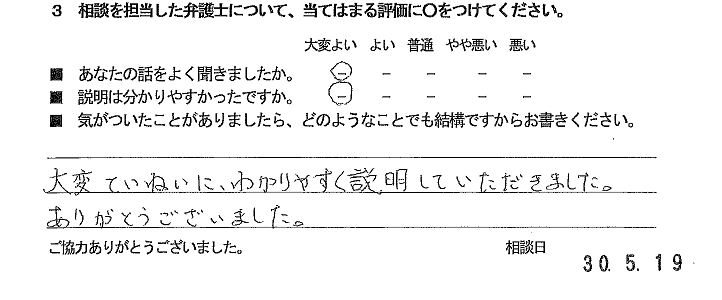 3 相談を担当した弁護士について、当てはまる評価に〇をつけてください。
大変よい よい 普通 やや悪い 悪い
■ あなたの話をよく聞きましたか。 － － － － －
■ 説明は分かりやすかったですか。 － － － － －
■ 気がついたことがありましたら、どのようなことでも結構ですからお書きください。
大変ていねいに、わかりやすく説明していただきました。
ありがとうございました。
ご協力ありがとうございました。 相談日 30. 5. 19